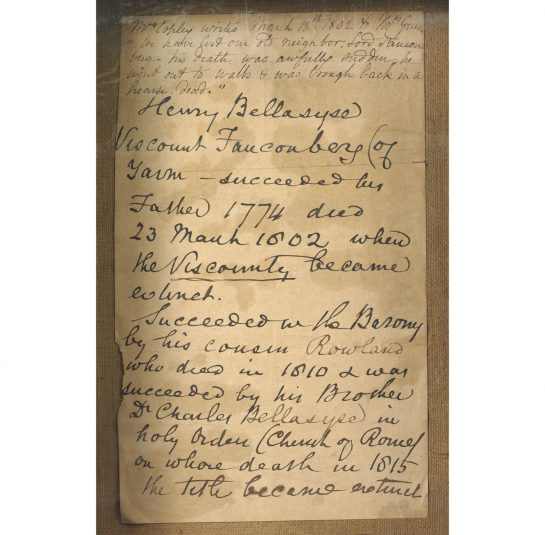 Mrs Copley writes March 18th 1802 to Mrs Greene
"We have lost our old neighbor, Lord Faucon
berg - his death was awfully sudden, he
went out to walk & was brough back in a
hearse, dead."
Henry Bellasyse
Viscount Fauconberg (of
Yarm - succeeded his
Father 1774 died
23 March 1802 when
the Viscounty became
extinct.
Succeeded in the Barony
by his cousin Rowland
who died in 1810 & was
succeeded by his Brother
Dr Charles Bellasyse in
holy Orders (Church of Rome)
on whose death in 1815
the title became extinct